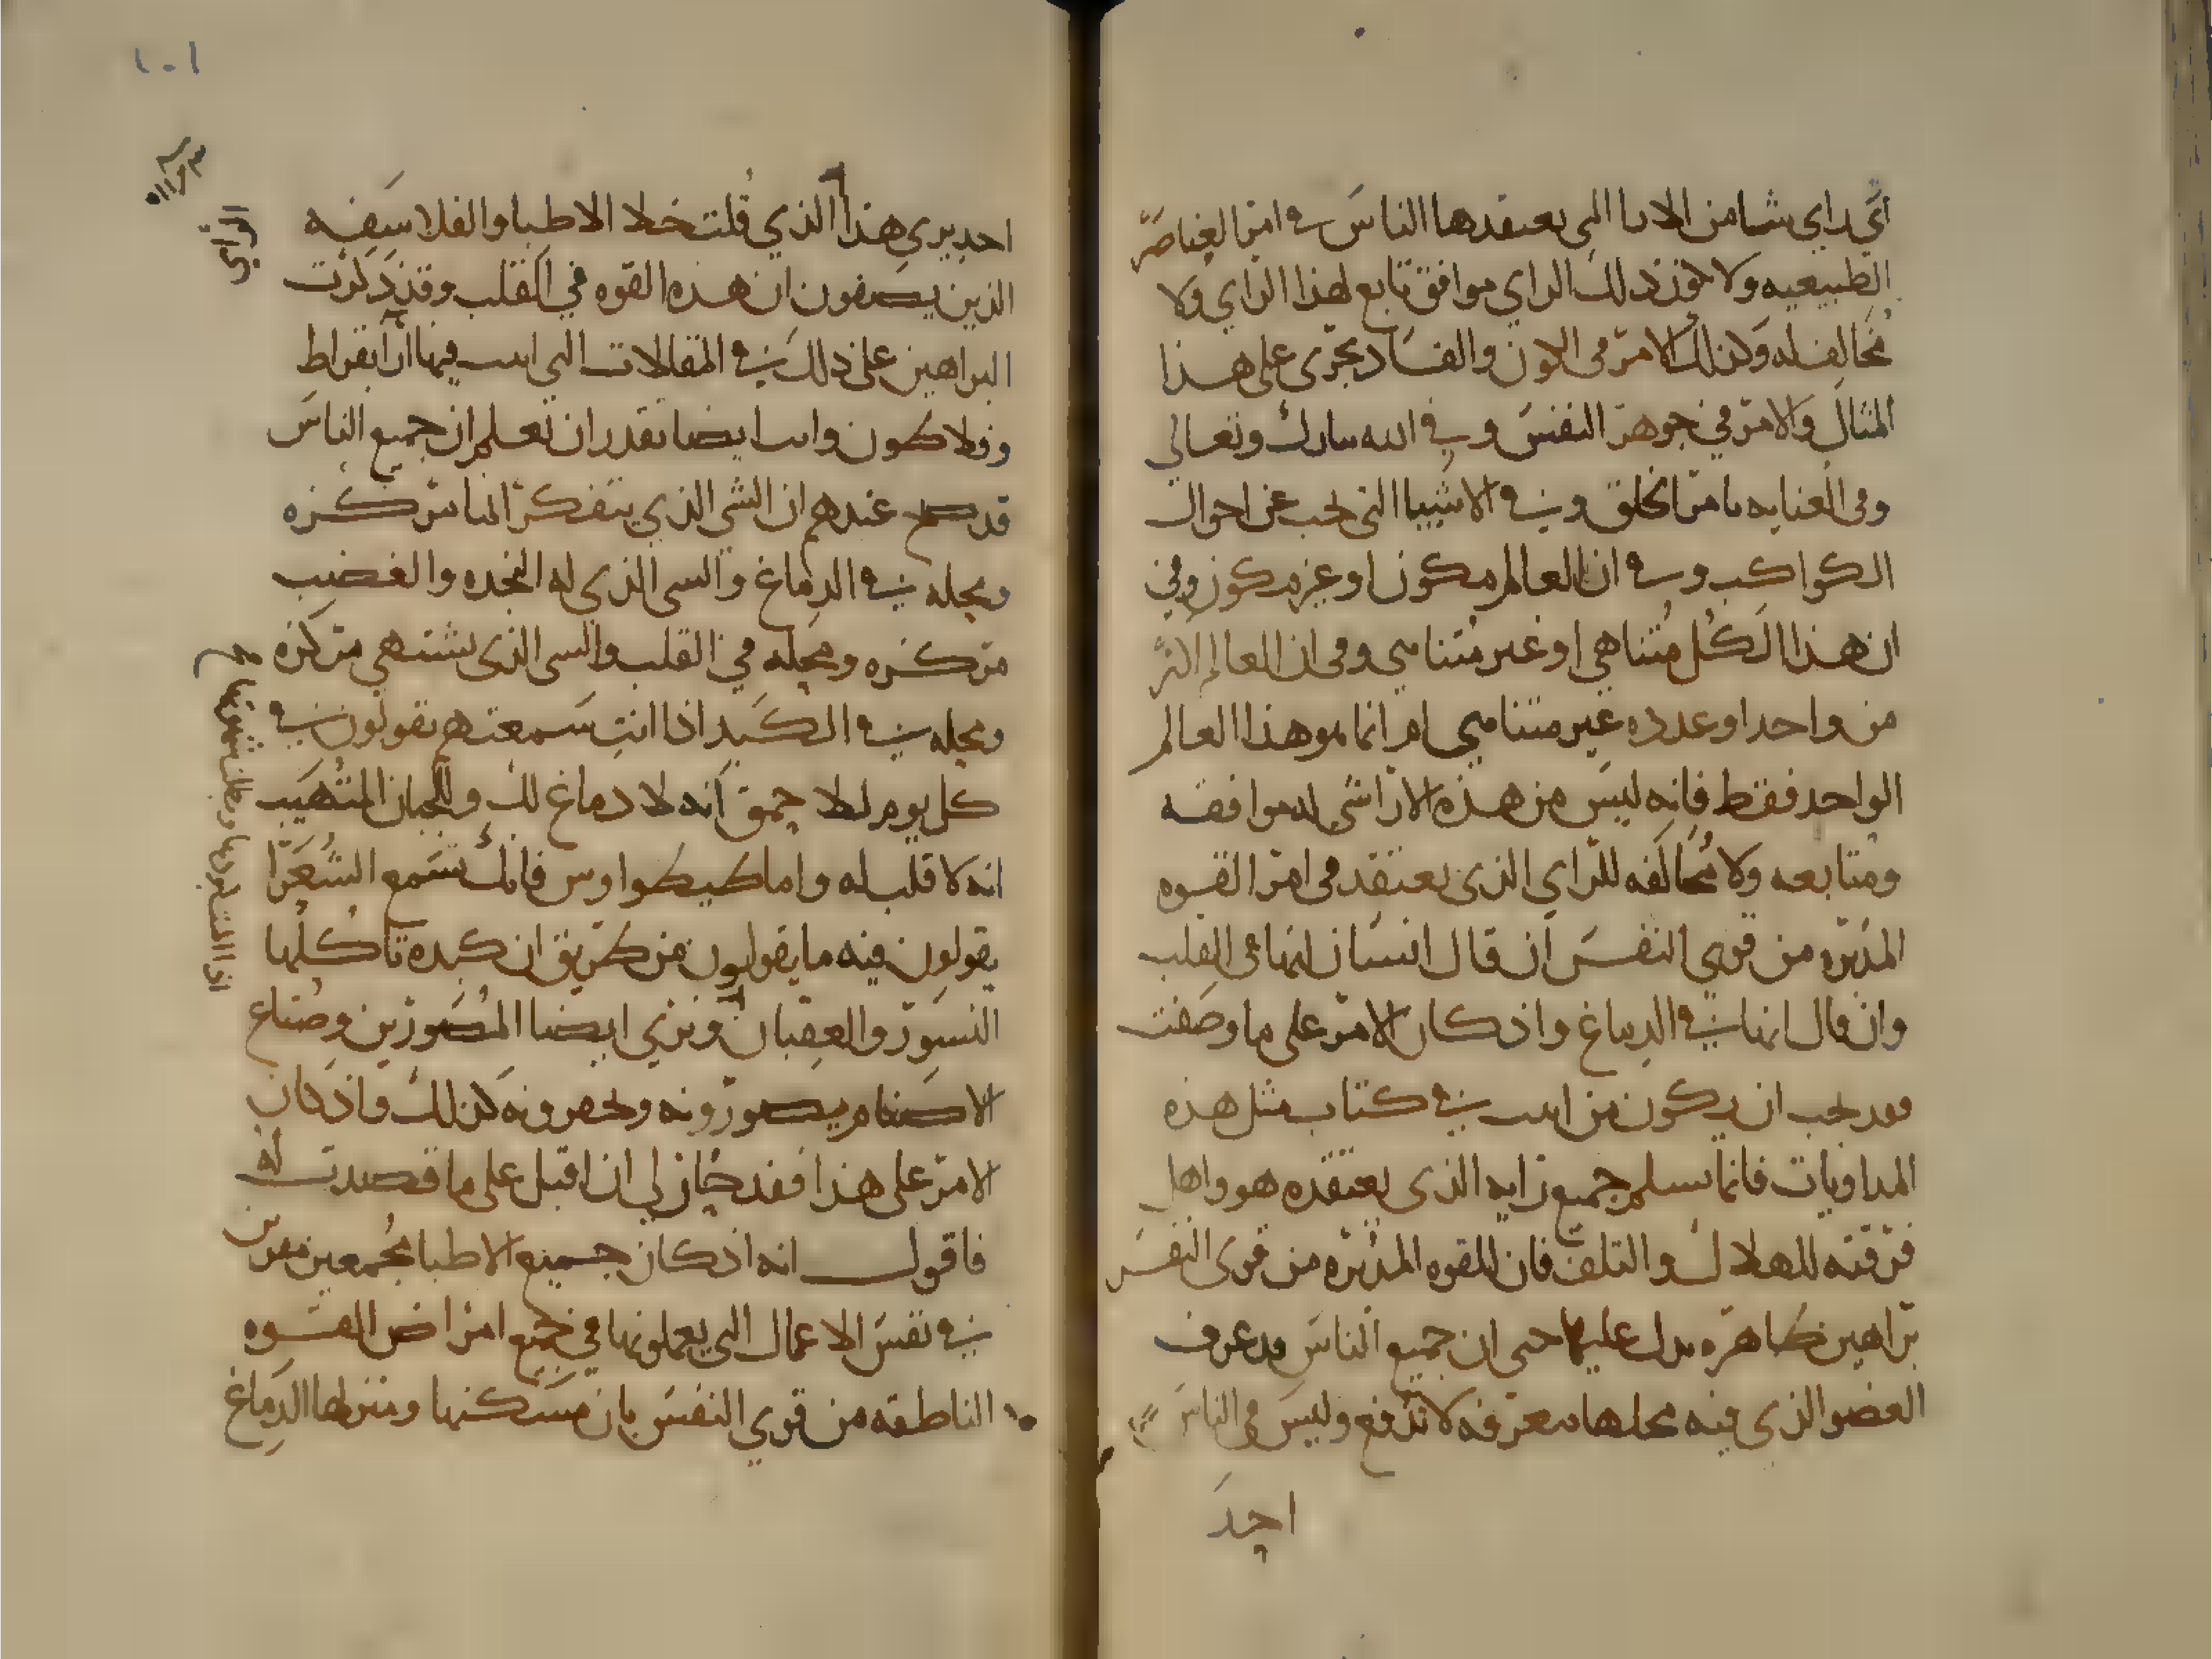 اي راي شا من الارا التي يعتقدها الناس في امر العناصر
الطبيعيه ولا يكون ذلك الراي موافق تابع لهذا الراي ولا
مخالف له وكذلك الامر في الكون والفساد يجري على هذا
المثال والامر في جوهر النفس وفي الله تبارك وتعالي
وفي العنايه بامر الخلق وفي الاشيا التي تحب عن احوال
الكواكب وفي ان العالم مكون او غير مكون وفي
ان هذا الكل متناهي او غير متناهي وفي ان العالم اكثر
من واحد او عدده غير متناهي ام انما هو هذا العالم
الواحد فقط فانه ليس من هذه الارا شي له موافقه
ومتابعه ولا مخالفه للراي الذي يعتقد في امر القوه
المدبره من قوي النفس ان قال انسان انها في القلب
وان قال انها في الدماغ واذ كان الامر على ما وصفت
فقد يجب ان يكون من اثبت في كتاب مثل هذه
المداويات فانما يسلم جميع رايه الذي يعتقده هو واهل
فرقته للهلاك والتلف فان للقوه المدبره من قوي النفس
براهين ظاهره تدل عليها حتى ان جميع الناس قد عرف
العضو الذي فيه محلها معرفه لا تدفع وليس في الناس
احد
١٠١
احد يري هذا الذي قلت خلا الاطبا والفلاسفه
الذين يصفون ان هذه القوه في القلب وقد ذكرت
البراهين على ذلك في المقالات التي اثبت فيها ارا ابقراط
وفلاطون وانت ايضا تقدر ان تعلم ان جميع الناس
قد صح عندهم ان الشي الذي يتفكر انما مركزه
ومحله في الدماغ والشي الذي له النجده والغضب
مركزه ومحله في القلب والشي الذي يشتهي مركزه
ومحله في الكبد اذا انت سمعتهم يقولون في
كل يوم للاحمق انه لا دماغ لك وللجبان المتهيب
انه لا قلب له واما طيطوا وس فانك تسمع الشعرا
يقولون فيه ما يقولون من طريق ان كبده تاكلها
النسور والعقبان وتري ايضا المصورين وصناع
الاصنام يصورونه ويحفرونه كذلك واذ كان
الامر على هذا فقد حان لي ان اقبل على ما قصدت له
فاقول انه اذ كان جميع الاطبا مجمعين مقرين
في نفس الاعمال التي يعملونها في جميع امراض القوه
الناطقه من قوي النفس بان مسكنها ومنزلها الدماغ